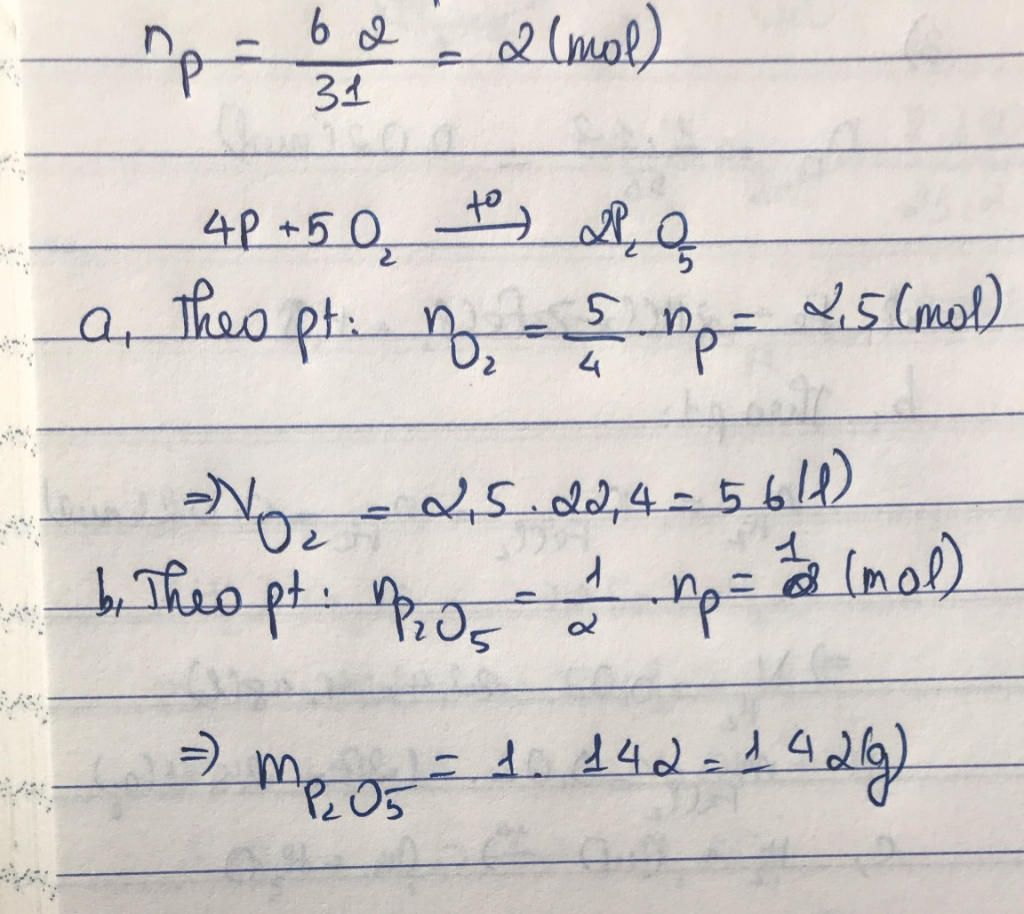 n_P = 62/31 = 2 (mol)
4P + 5O₂ →(t°) 2P₂O₅
a, Theo pt: n_O₂ = 5/4 . n_P = 2,5 (mol)
⇒ V_O₂ = 2,5 . 22,4 = 56 (l)
b, Theo pt: n_P₂O₅ = 1/2 . n_P = 1 (mol)
⇒ m_P₂O₅ = 1 . 142 = 142 (g)